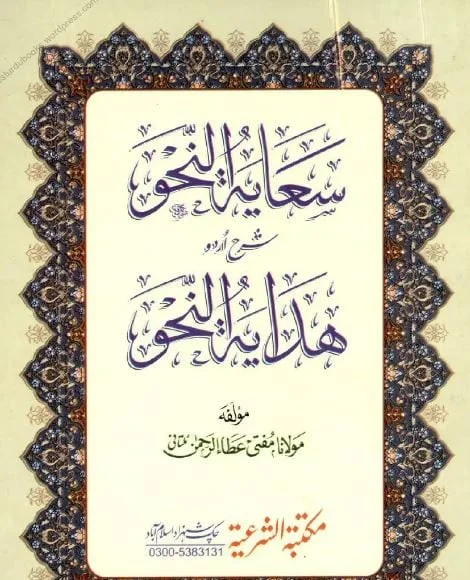 سعایۃ النحو
شرح اردو
ھدایۃ النحو
مؤلفہ
مولانا مفتی عطاء الرحمن ملتانی
مکتبۃ الشرعیۃ
چک شہزاد اسلام آباد
0300-5383131